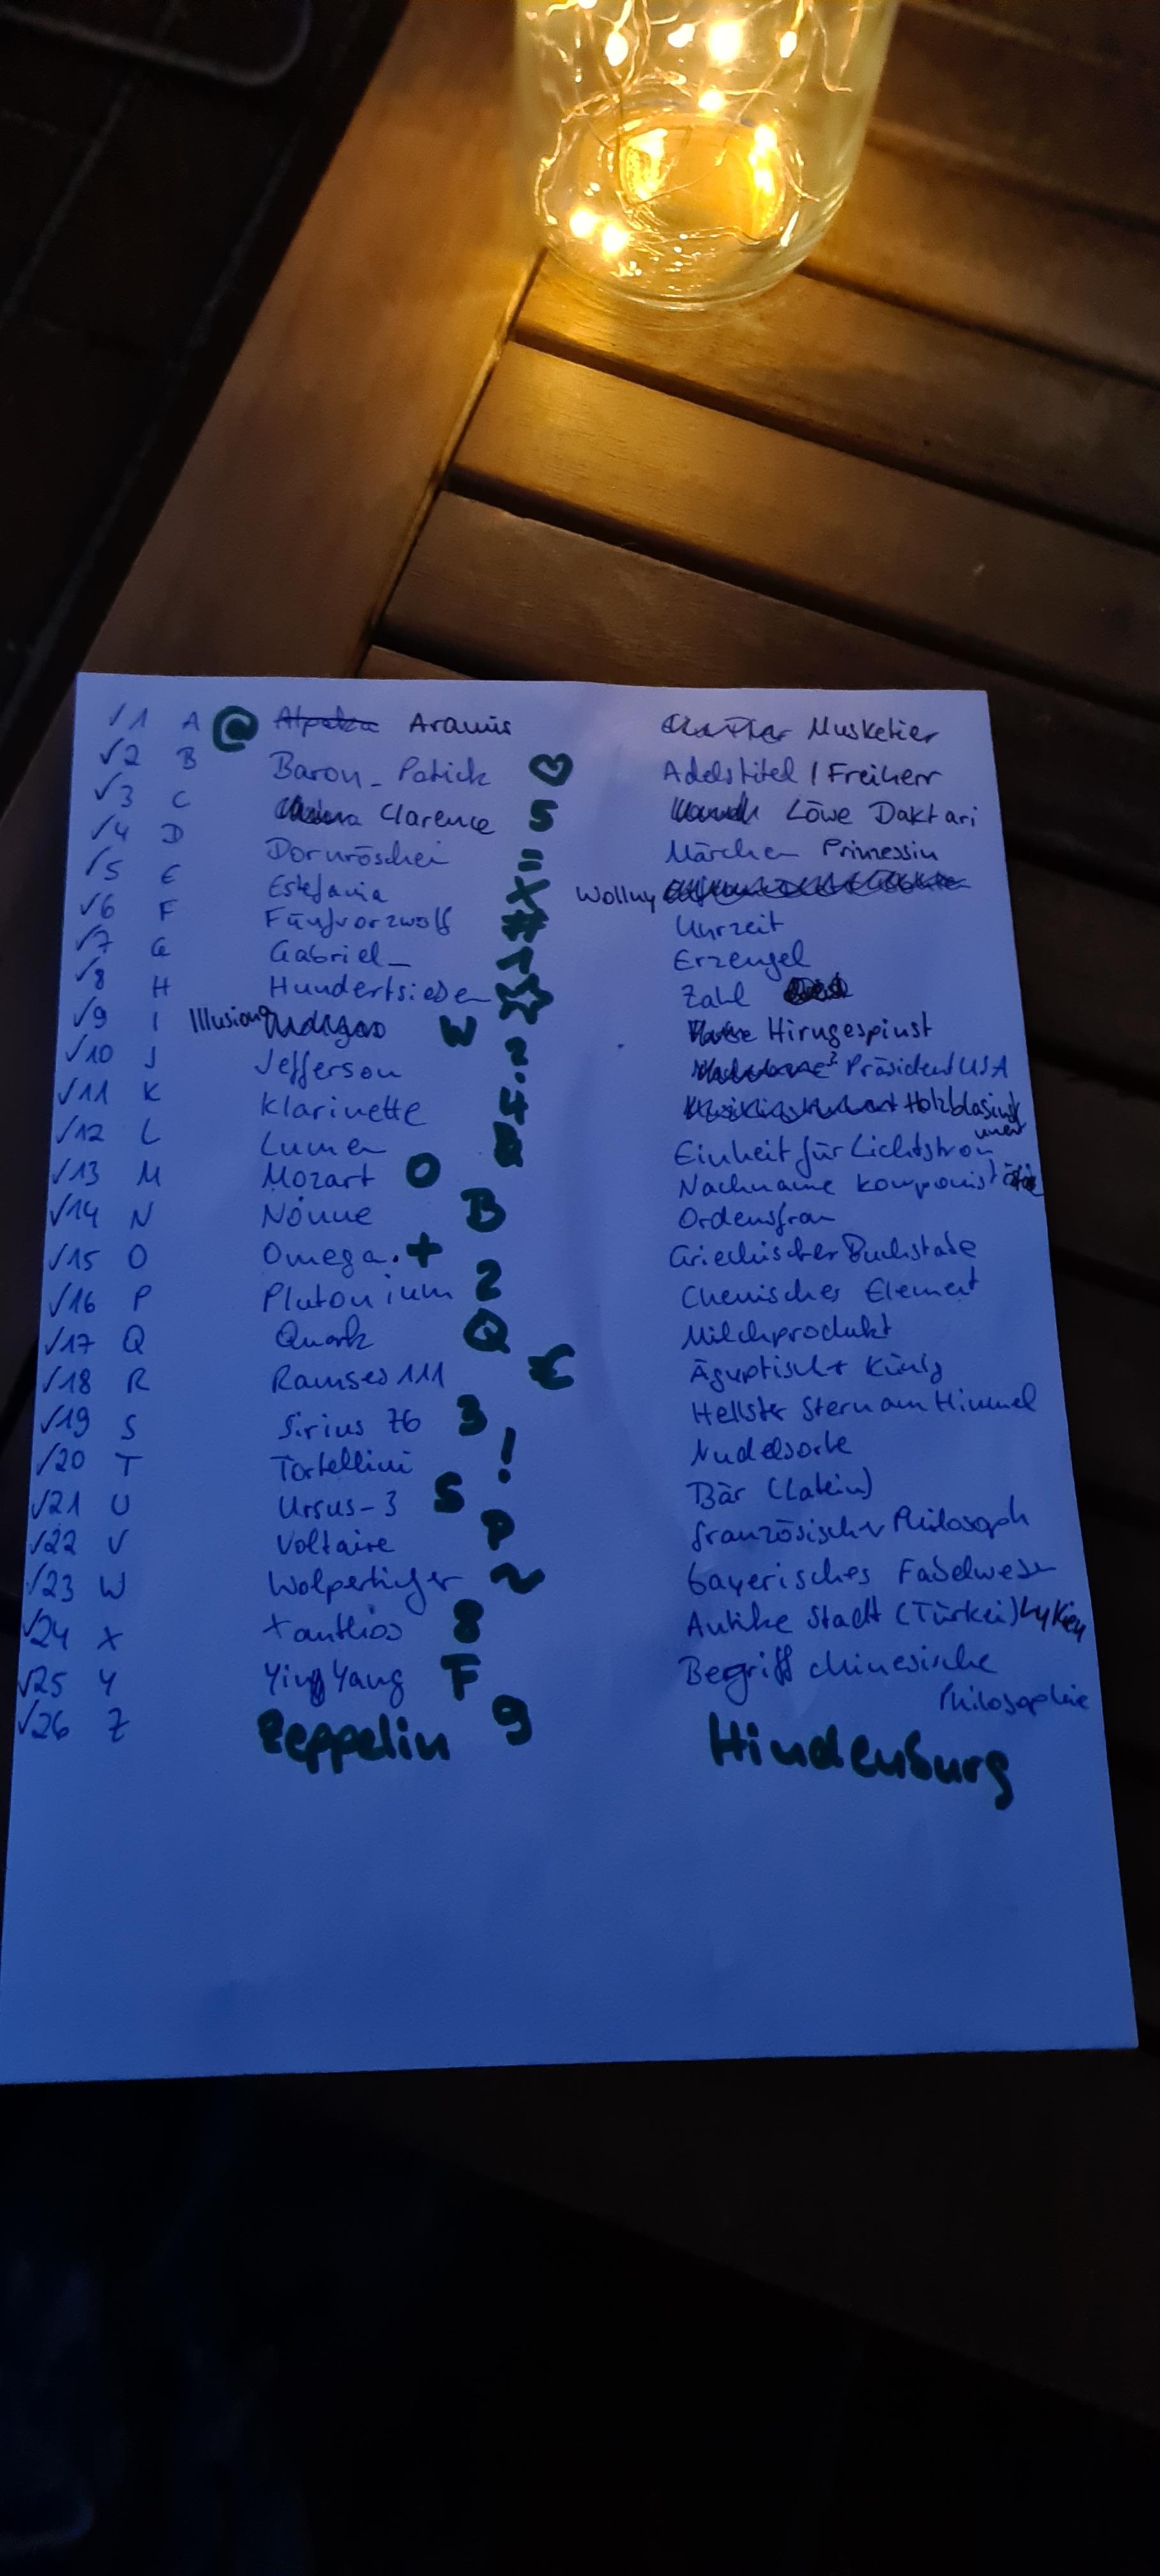 √1 A @ Alpaka Aramis Musketier
√2 B Baron_Patick ♡ Adelstitel / Freiherr
√3 C Clarence 5 Löwe Daktari
√4 D Dornröschen = Märchen Prinzessin
√5 E Estefania X Wollny
√6 F Fünfvorzwölf # Uhrzeit
√7 G Gabriel_ 1 Erzengel
√8 H Hundertsieben ☆ Zahl
√9 I Illusion W Hirngespinst
√10 J Jefferson ? Präsident USA
√11 K Klarinette 4 Holzblasinstrument
√12 L Lumen Einheit für Lichtstrom
√13 M Mozart O Nachname Komponist
√14 N Nonne B Ordensfrau
√15 O Omega. + Griechischer Buchstabe
√16 P Plutonium 2 Chemisches Element
√17 Q Quark Q Milchprodukt
√18 R Ramses 111 € Ägyptischer König
√19 S Sirius 76 3 Hellster Stern am Himmel
√20 T Tortellini ! Nudelsorte
√21 U Ursus-3 S Bär (Latein)
√22 V Voltaire P französischer Philosoph
√23 W Wolpertinger ~ bayerisches Fabelwesen
√24 X Xanthos 8 Antike Stadt (Türkei) Lykien
√25 Y Ying Yang F Begriff chinesische
Philosophie
√26 Z Zeppelin 9 Hindenburg